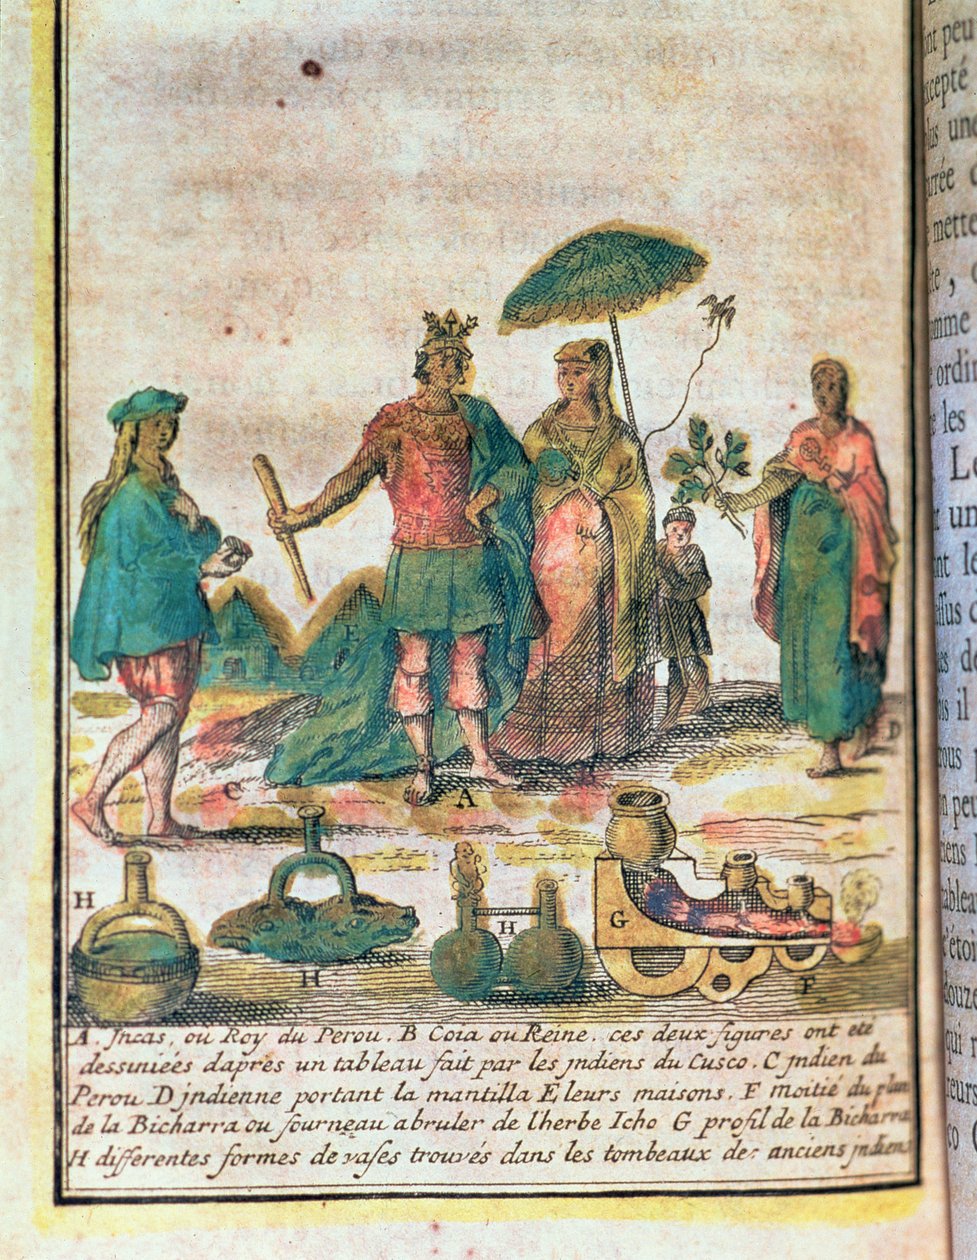 E
D
C
A
B
H
G
H
H
F
A. Jncas, ou Roy du Perou. B Coia ou Reine. ces deux figures ont eté
dessiniées daprès un tableau fait par les jndiens du Cusco. C jndien du
Perou D jndienne portant la mantilla E leurs maisons. F moitié du plan
de la Bicharra ou fourneau abruler de lherbe Icho G profil de la Bicharra
H differentes formes de vases trouvés dans les tombeaux des anciens jndiens
ont peu
excepté
plus une
mette
omme
ordin
les
Le